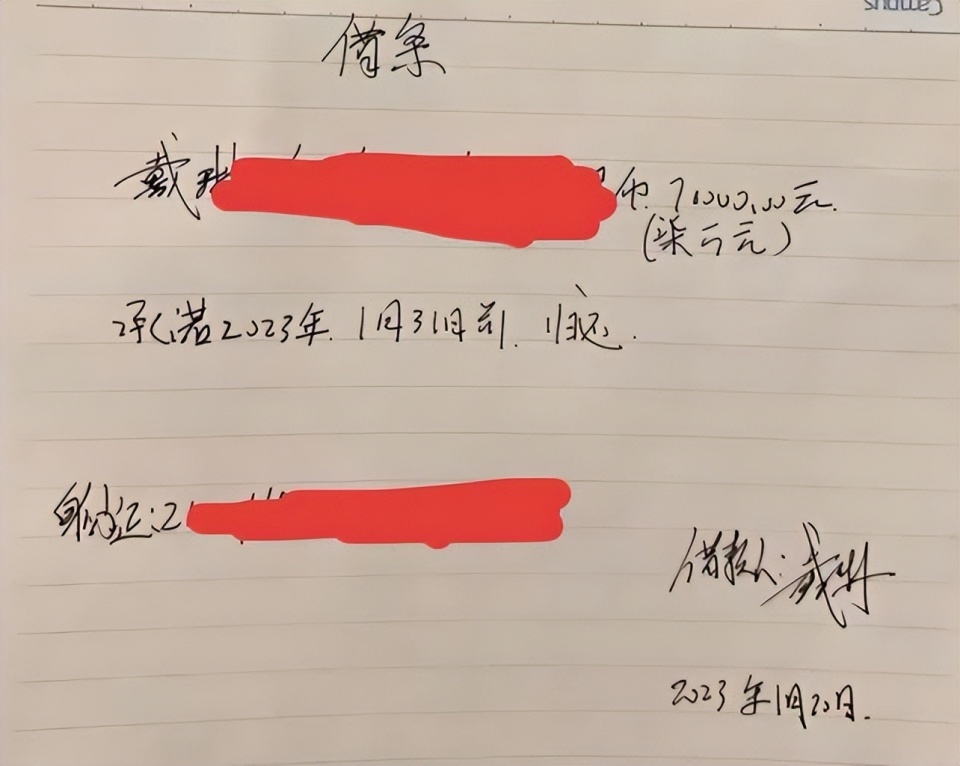 Campus
借条
戴 币 7000.00元.
(柒万元)
承诺2023年.1月31日前.归还.
身份证:2
借款人:戴
2023年1月20日.